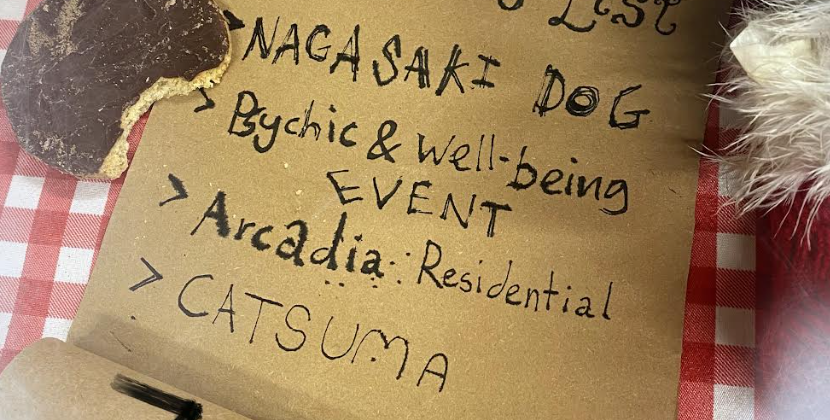 List
> NAGASAKI DOG
> Psychic & well-being
EVENT
> Arcadia: Residential
> CATSUMA